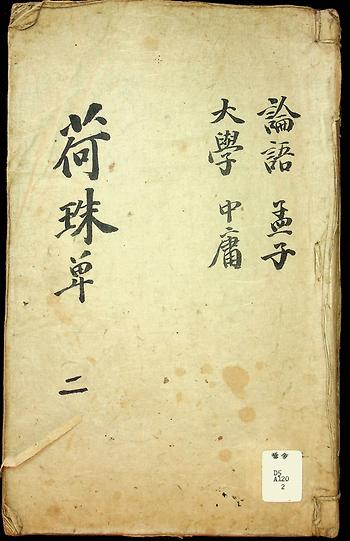 論語 孟子
大學 中庸
荷珠單
二
D5
A120
2